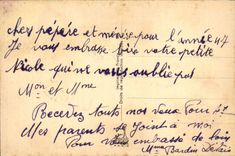 cher pépère et mémère pour l'année 47
Je vous embrasse bien votre petite
Nicole qui ne vous oublie pas
Mon et Mme
Recevez touts nos veux Pour 47
Mes parents se joint à moi
Pour vous embrassé de loin
Mme Bardin